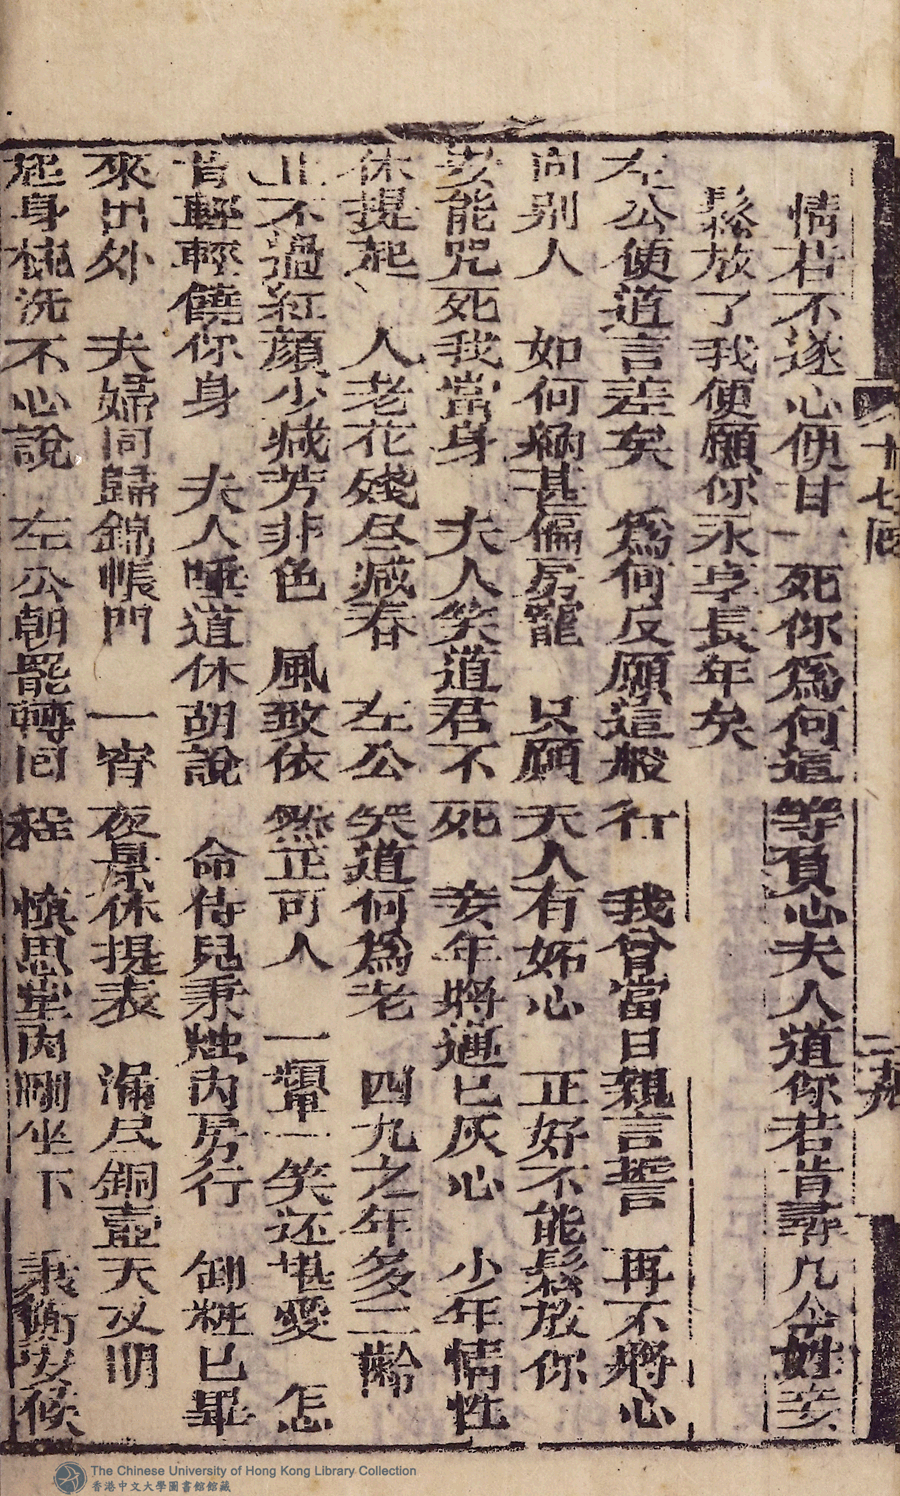 十七回
二十九
情君不遂心便甘一死你為何這等負心夫人道你若肯尋几个姓妾
鬆放了我便願你永享長年矣
左公便道言差矣 為何反願這般行 我曾當日親言誓 再不將心
向別人 如何綱甚偏房寵 只願夫人有妬心 正好不能鬆放你
妾能咒死我當身 夫人笑道君不死 妾年將邁已灰心 少年情性
休提起 人老花殘尽减春 左公笑道何為老 四九之年多二齡
止不過紅顏少减芳非色 風致依然正可人 一顰一笑还堪愛 怎
肯輕輕饒你身 夫人唾道休胡說 命侍兒秉烛內房行 卸粧已畢
來出外 夫婦同歸錦帳門 一宵夜景休提表 漏尽銅壺天又明
起身梳洗不心說 左公朝罷轉回程 慎思堂內剛坐下 秉衡安候
The Chinese University of Hong Kong Library Collection
香港中文大學圖書館館藏